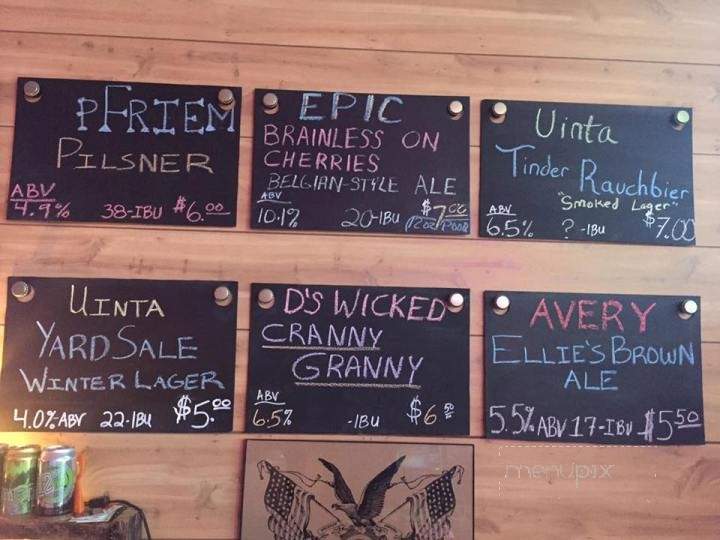 pFRIEM
PILSNER
ABV
4.9% 38-IBU $6.00
EPIC
BRAINLESS ON
CHERRIES
BELGIAN-STYLE ALE
ABV
10.1% 20-IBU $7.00
(12oz POUR)
Uinta
Tinder Rauchbier
"Smoked Lager"
ABV
6.5% ? -IBU $7.00
UINTA
YARD SALE
WINTER LAGER
4.0% ABV 22-IBU $5.00
D'S WICKED
CRANNY
GRANNY
ABV
6.5% -IBU $6.50
AVERY
ELLIE'S BROWN
ALE
5.5% ABV 17-IBU $5.50
menupix